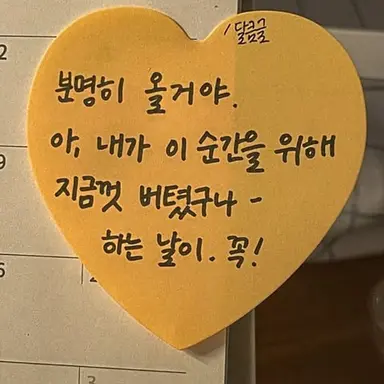 /달금글
분명히 올거야.
아, 내가 이 순간을 위해
지금껏 버텼구나 -
하는 날이. 꼭!
2
9
6
2
3